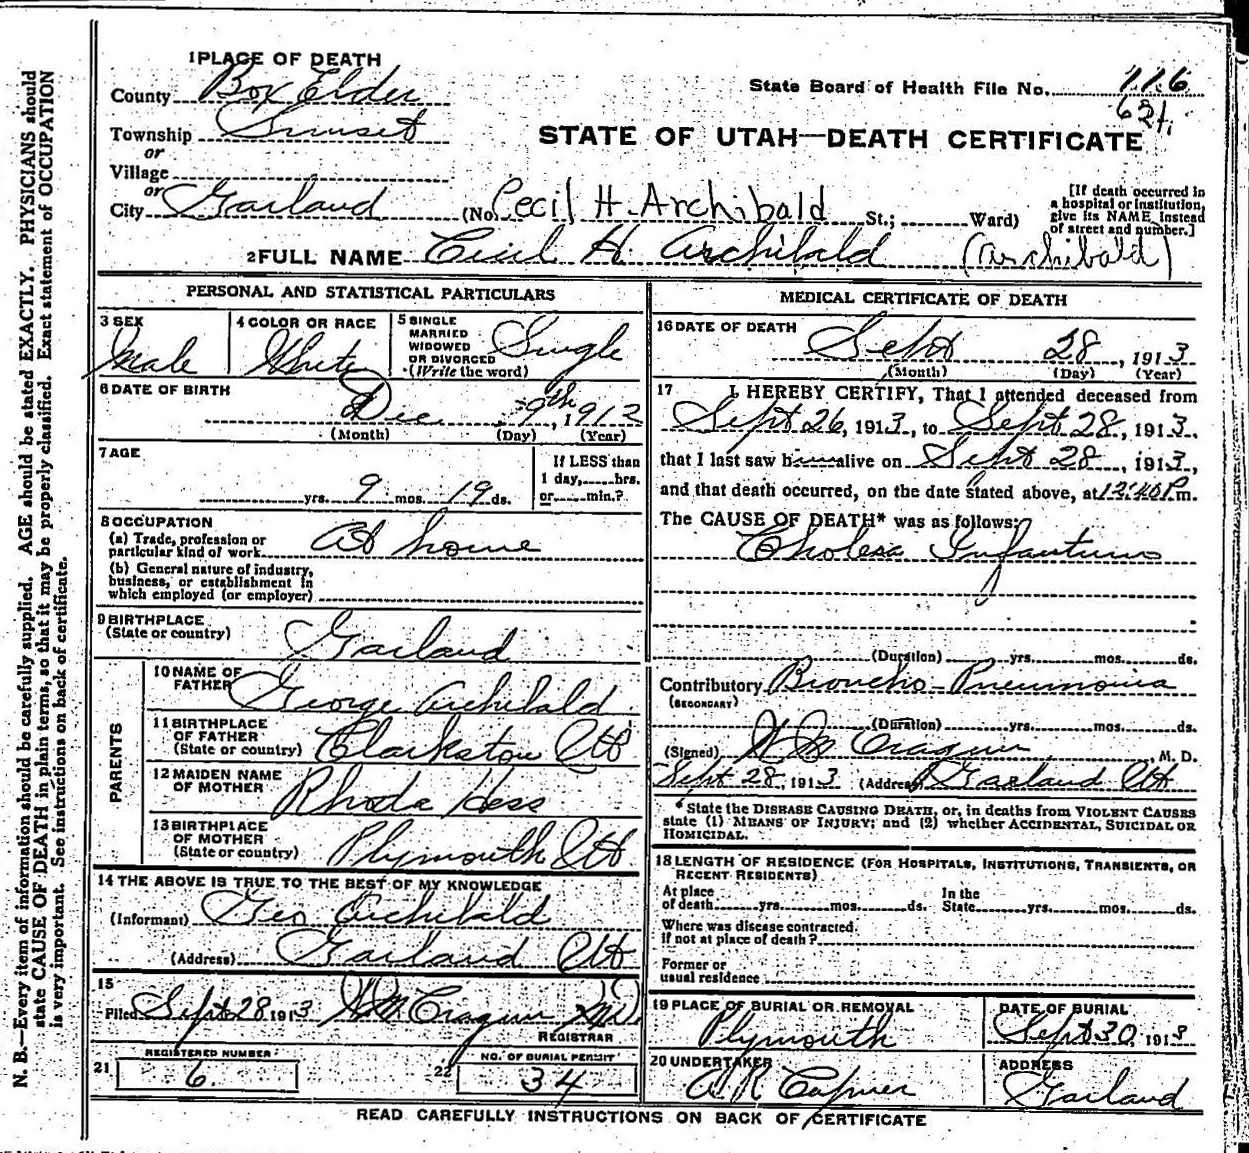 1 PLACE OF DEATH
County Box Elder
State Board of Health File No. 116
621
Township Sunset
or
STATE OF UTAH—DEATH CERTIFICATE
Village
or
City Garland (No. Cecil H. Archibald St.; Ward)
[If death occurred in a hospital or institution, give its NAME instead of street and number.]
2 FULL NAME Cecil H. Archibald (Archibald)
PERSONAL AND STATISTICAL PARTICULARS
3 SEX
Male
4 COLOR OR RACE
White
5 SINGLE
MARRIED
WIDOWED
OR DIVORCED
(Write the word)
Single
6 DATE OF BIRTH
Dec 9th, 1912
(Month) (Day) (Year)
7 AGE
yrs. 9 mos. 19 ds.
If LESS than
1 day, hrs.
or min.?
8 OCCUPATION
(a) Trade, profession or
particular kind of work At home
(b) General nature of industry,
business, or establishment in
which employed (or employer)
9 BIRTHPLACE
(State or country) Garland
PARENTS
10 NAME OF
FATHER George Archibald
11 BIRTHPLACE
OF FATHER
(State or country) Clarkston Ut
12 MAIDEN NAME
OF MOTHER Rhoda Hess
13 BIRTHPLACE
OF MOTHER
(State or country) Plymouth Ut
14 THE ABOVE IS TRUE TO THE BEST OF MY KNOWLEDGE
(Informant) Geo Archibald
(Address) Garland Ut
15
Filed Sept 28 1913 Wm Cragun MD
REGISTRAR
21 REGISTERED NUMBER
6
22 NO. OF BURIAL PERMIT
34
MEDICAL CERTIFICATE OF DEATH
16 DATE OF DEATH
Sept 28, 1913
(Month) (Day) (Year)
17 I HEREBY CERTIFY, That I attended deceased from
Sept 26, 1913, to Sept 28, 1913,
that I last saw h alive on Sept 28, 1913,
and that death occurred, on the date stated above, at 12:40 P.m.
The CAUSE OF DEATH* was as follows:
Cholera Infantum
(Duration) yrs. mos. ds.
Contributory Broncho Pneumonia
(SECONDARY)
(Duration) yrs. mos. ds.
(Signed) Wm Cragun, M. D.
Sept 28, 1913 (Address) Garland Ut
* State the DISEASE CAUSING DEATH, or, in deaths from VIOLENT CAUSES
state (1) MEANS OF INJURY; and (2) whether ACCIDENTAL, SUICIDAL OR
HOMICIDAL.
18 LENGTH OF RESIDENCE (FOR HOSPITALS, INSTITUTIONS, TRANSIENTS, OR
RECENT RESIDENTS)
At place
of death yrs. mos. ds.
In the
State yrs. mos. ds.
Where was disease contracted.
If not at place of death?
Former or
usual residence
19 PLACE OF BURIAL OR REMOVAL
Plymouth
DATE OF BURIAL
Sept 30 1913
20 UNDERTAKER
A R Capner
ADDRESS
Garland
READ CAREFULLY INSTRUCTIONS ON BACK OF CERTIFICATE
N. B.—Every item of information should be carefully supplied. AGE should be stated EXACTLY. PHYSICIANS should
state CAUSE OF DEATH in plain terms, so that it may be properly classified. Exact statement of OCCUPATION
is very important. See instructions on back of certificate.